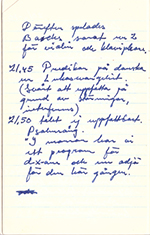 spelades
Bachs sonat nr 2
för violin och
21,45 Predikan på danska
ur Lukasevangeliet.
(Svårt att uppfatta på
grund av störningar,
interferens)
21,50 talet ej uppfattbart.
Psalmsång.
"I morgon har vi
ett program för
dx-are och nu adjö
för den här gången.